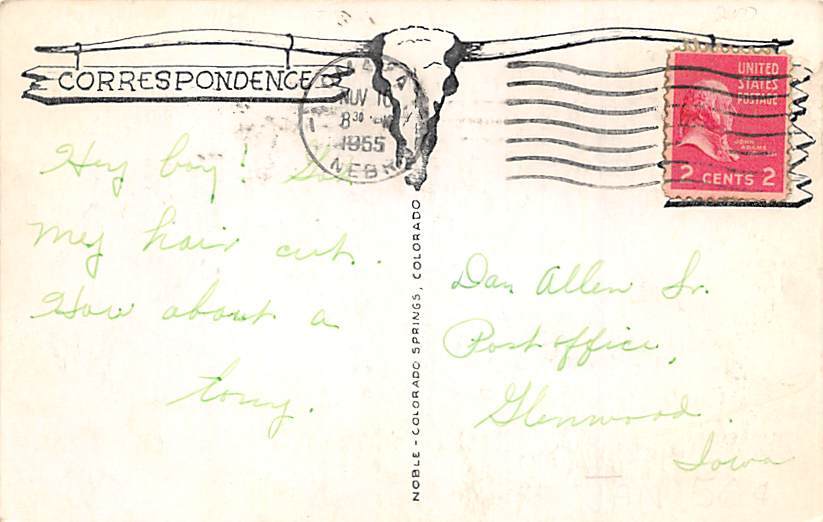 CORRESPONDENCE
OMAHA
NOV 10
8 30 AM
1955
NEBR
UNITED
STATES
POSTAGE
JOHN
ADAMS
2 CENTS 2
Hey boy! See
my hair cut.
How about a
NOBLE - COLORADO SPRINGS, COLORADO
Dan Allen Sr.
Post office,
Glenwood.
Iowa